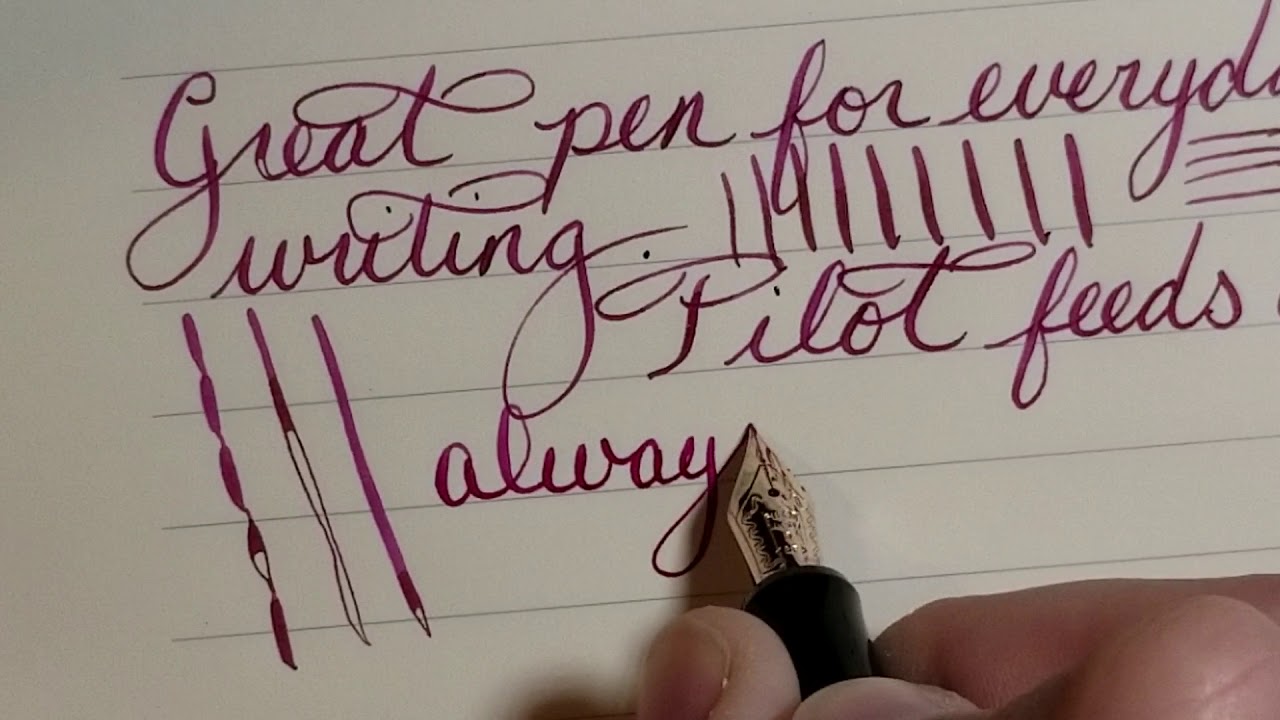 Great pen for everyda
writing.
Pilot feeds
alway